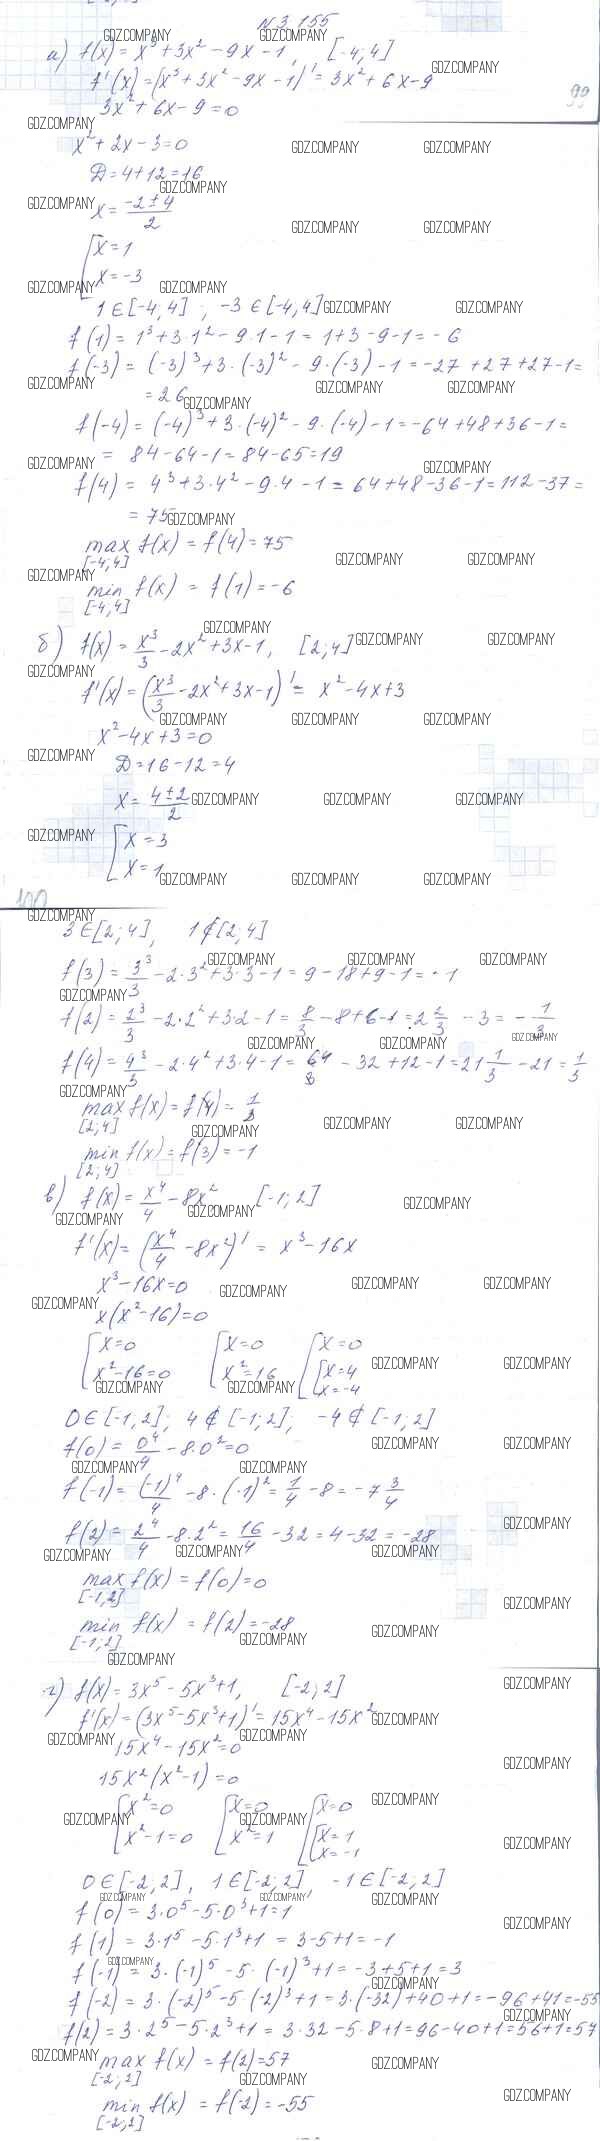 N 3.155
а) f(x) = x³ + 3x² - 9x - 1, [-4; 4]
f'(x) = (x³ + 3x² - 9x - 1)' = 3x² + 6x - 9
99
3x² + 6x - 9 = 0
x² + 2x - 3 = 0
D = 4 + 12 = 16
x = (-2 ± 4)/2
[ x = 1
x = -3
1 ∈ [-4; 4] ; -3 ∈ [-4; 4]
f(1) = 1³ + 3·1² - 9·1 - 1 = 1 + 3 - 9 - 1 = -6
f(-3) = (-3)³ + 3·(-3)² - 9·(-3) - 1 = -27 + 27 + 27 - 1 =
= 26
f(-4) = (-4)³ + 3·(-4)² - 9·(-4) - 1 = -64 + 48 + 36 - 1 =
= 84 - 64 - 1 = 84 - 65 = 19
f(4) = 4³ + 3·4² - 9·4 - 1 = 64 + 48 - 36 - 1 = 112 - 37 =
= 75
max f(x) = f(4) = 75
[-4; 4]
min f(x) = f(1) = -6
[-4; 4]
б) f(x) = x³/3 - 2x² + 3x - 1, [2; 4]
f'(x) = (x³/3 - 2x² + 3x - 1)' = x² - 4x + 3
x² - 4x + 3 = 0
D = 16 - 12 = 4
x = (4 ± 2)/2
[ x = 3
x = 1
100
3 ∈ [2; 4], 1 ∉ [2; 4]
f(3) = 3³/3 - 2·3² + 3·3 - 1 = 9 - 18 + 9 - 1 = -1
f(2) = 2³/3 - 2·2² + 3·2 - 1 = 8/3 - 8 + 6 - 1 = 2 2/3 - 3 = -1/3
f(4) = 4³/3 - 2·4² + 3·4 - 1 = 64/3 - 32 + 12 - 1 = 21 1/3 - 21 = 1/3
max f(x) = f(4) = 1/3
[2; 4]
min f(x) = f(3) = -1
[2; 4]
в) f(x) = x⁴/4 - 8x² [-1; 2]
f'(x) = (x⁴/4 - 8x²)' = x³ - 16x
x³ - 16x = 0
x(x² - 16) = 0
[ x = 0 [ x = 0 [ x = 0
x² - 16 = 0 x² = 16 [ x = 4
x = -4
0 ∈ [-1; 2]; 4 ∉ [-1; 2]; -4 ∉ [-1; 2]
f(0) = 0⁴/4 - 8·0² = 0
f(-1) = (-1)⁴/4 - 8·(-1)² = 1/4 - 8 = -7 3/4
f(2) = 2⁴/4 - 8·2² = 16/4 - 32 = 4 - 32 = -28
max f(x) = f(0) = 0
[-1; 2]
min f(x) = f(2) = -28
[-1; 2]
г) f(x) = 3x⁵ - 5x³ + 1, [-2; 2]
f'(x) = (3x⁵ - 5x³ + 1)' = 15x⁴ - 15x²
15x⁴ - 15x² = 0
15x²(x² - 1) = 0
[ x² = 0 [ x = 0 [ x = 0
x² - 1 = 0 x² = 1 [ x = 1
x = -1
0 ∈ [-2; 2], 1 ∈ [-2; 2], -1 ∈ [-2; 2]
f(0) = 3·0⁵ - 5·0³ + 1 = 1
f(1) = 3·1⁵ - 5·1³ + 1 = 3 - 5 + 1 = -1
f(-1) = 3·(-1)⁵ - 5·(-1)³ + 1 = -3 + 5 + 1 = 3
f(-2) = 3·(-2)⁵ - 5·(-2)³ + 1 = 3·(-32) + 40 + 1 = -96 + 41 = -55
f(2) = 3·2⁵ - 5·2³ + 1 = 3·32 - 5·8 + 1 = 96 - 40 + 1 = 56 + 1 = 57
max f(x) = f(2) = 57
[-2; 2]
min f(x) = f(-2) = -55
[-2; 2]
GDZ.COMPANY